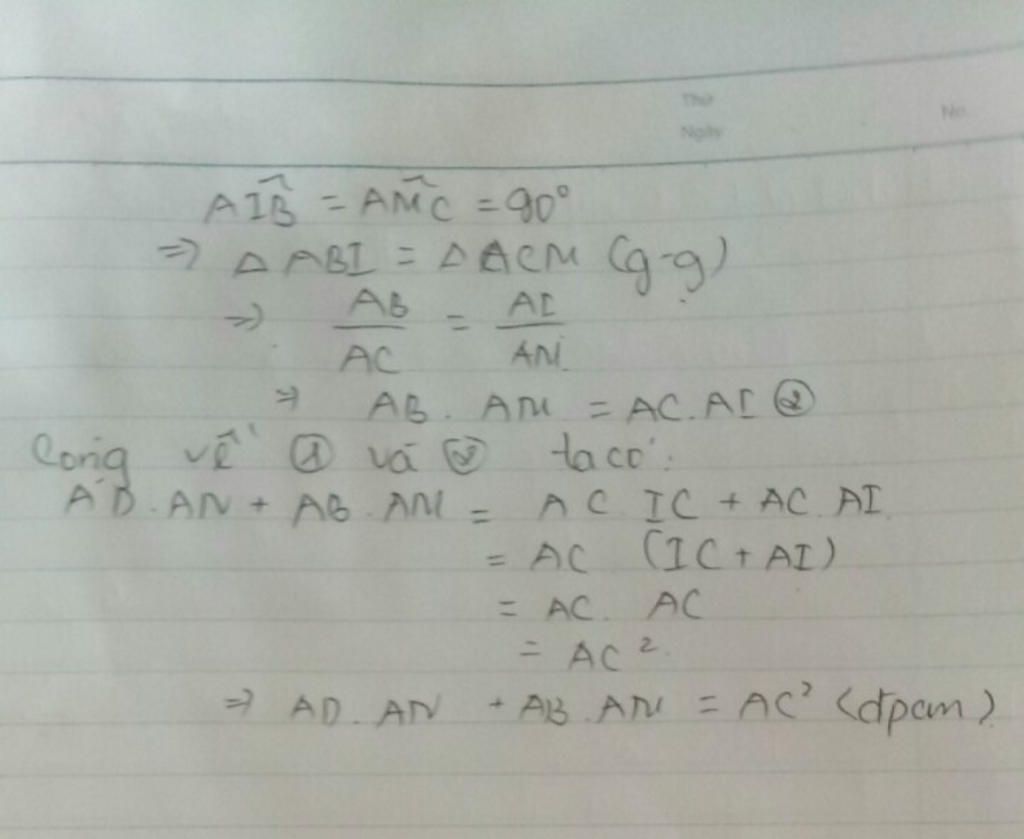 Thứ
Ngày
No.
AIB̂ = AM̂C = 90°
=> Δ ABI = Δ ACM (g-g)
=> AB/AC = AI/AM
=> AB . AM = AC. AI ②
Cộng vế ① và ② ta có:
AD . AN + AB . AM = AC IC + AC. AI
= AC (IC + AI)
= AC. AC
= AC².
=> AD. AN + AB. AN = AC² (đpcm)